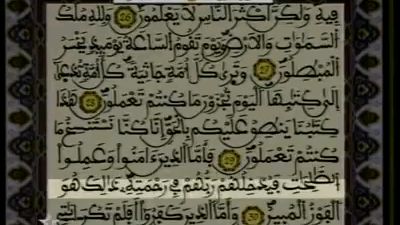 فِيهِ وَلَٰكِنَّ أَكْثَرَ النَّاسِ لَا يَعْلَمُونَ ٢٦ وَلِلَّهِ مُلْكُ
السَّمَاوَاتِ وَالْأَرْضِ وَيَوْمَ تَقُومُ السَّاعَةُ يَوْمَئِذٍ يَخْسَرُ
الْمُبْطِلُونَ ٢٧ وَتَرَىٰ كُلَّ أُمَّةٍ جَاثِيَةً كُلُّ أُمَّةٍ تُدْعَىٰ
إِلَىٰ كِتَابِهَا الْيَوْمَ تُجْزَوْنَ مَا كُنْتُمْ تَعْمَلُونَ ٢٨ هَٰذَا
كِتَابُنَا يَنْطِقُ عَلَيْكُمْ بِالْحَقِّ إِنَّا كُنَّا نَسْتَنْسِخُ مَا
كُنْتُمْ تَعْمَلُونَ ٢٩ فَأَمَّا الَّذِينَ آمَنُوا وَعَمِلُوا
الصَّالِحَاتِ فَيُدْخِلُهُمْ رَبُّهُمْ فِي رَحْمَتِهِ ذَٰلِكَ هُوَ
الْفَوْزُ الْمُبِينُ ٣٠ وَأَمَّا الَّذِينَ كَفَرُوا أَفَلَمْ تَكُنْ آيَاتِي